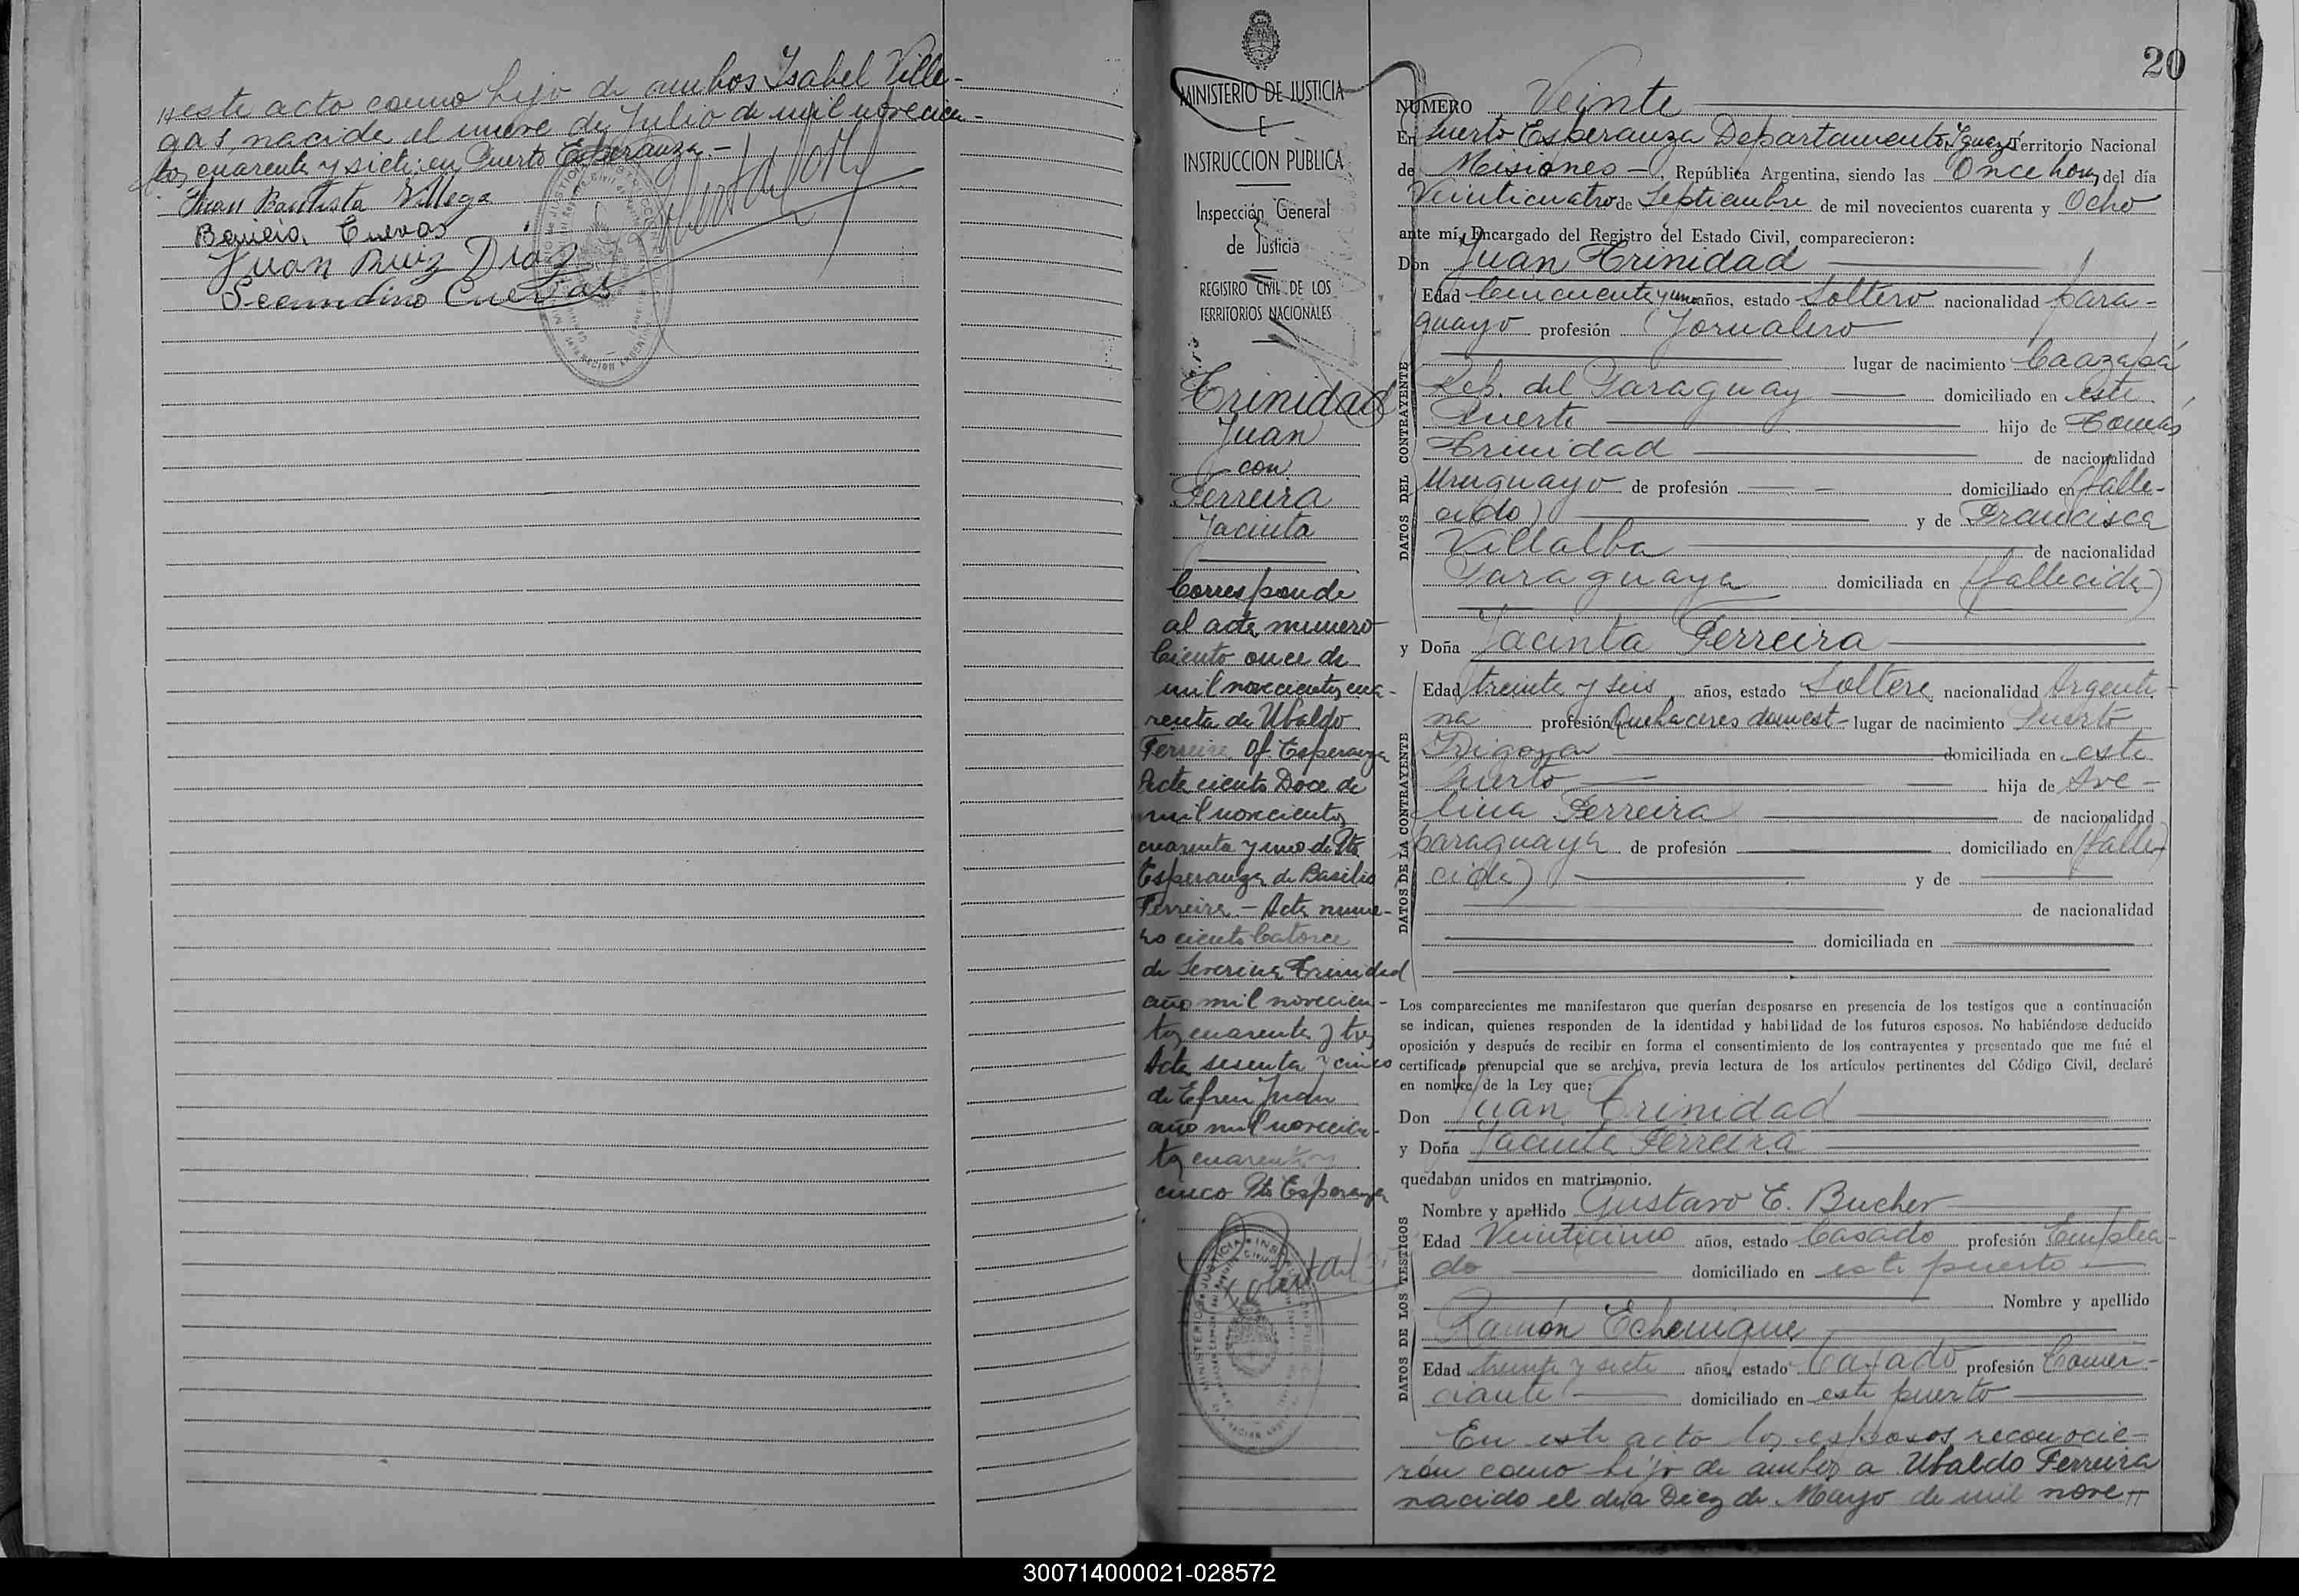 este acto como hijo de ambos Isabel Ville-
gas, nacido el nueve de Julio de mil novecien-
tos cuarenta y siete en Puerto Esperanza.-
Juan Bautista Villega
Cuevas
Juan Ruiz Diaz
Secundino Cuevas
MINISTERIO DE JUSTICIA
E
INSTRUCCION PUBLICA
Inspección General
de Justicia
REGISTRO CIVIL DE LOS
TERRITORIOS NACIONALES
Trinidad
Juan
con
Ferreira
Jacinta
Corresponde
al acta numero
Ciento once de
mil novecientos cua-
renta de Ubaldo
Ferreira Of. Esperanza
Acta ciento Doce de
mil novecientos
cuarenta y uno de Pto
Esperanza de Basilio
Ferreira - Acta nume-
ro ciento Catorce
de Severina Trinidad
año mil novecien-
tos cuarenta y tres
Acta sesenta y cinco
de Efren Juan
año mil novecien-
tos cuarenta
cinco Pto Esperanza
20
NUMERO Veinte
En Puerto Esperanza Departamento Iguazú Territorio Nacional
de Misiones - , República Argentina, siendo las Once horas del día
Veinticuatro de Septiembre de mil novecientos cuarenta y Ocho
ante mí, Encargado del Registro del Estado Civil, comparecieron:
Don Juan Trinidad
DATOS DEL CONTRAYENTE
Edad Cincuenta y uno años, estado Soltero nacionalidad para-
guayo profesión Jornalero
lugar de nacimiento Caazapá
Rep. del Paraguay domiciliado en este
Puerto hijo de Tomás
Trinidad de nacionalidad
Uruguayo de profesión domiciliado en (falle-
cido) y de Francisca
Villalba de nacionalidad
Paraguaya domiciliada en (fallecida)
y Doña Jacinta Ferreira
DATOS DE LA CONTRAYENTE
Edad treinta y seis años, estado Soltera nacionalidad Argenti-
na profesión Quehaceres domest- lugar de nacimiento Puerto
domiciliada en este
Puerto hija de Ave-
lina Ferreira de nacionalidad
paraguaya de profesión domiciliado en (falle-
cida) y de
de nacionalidad
domiciliada en
Los comparecientes me manifestaron que querían desposarse en presencia de los testigos que a continuación
se indican, quienes responden de la identidad y habilidad de los futuros esposos. No habiéndose deducido
oposición y después de recibir en forma el consentimiento de los contrayentes y presentado que me fué el
certificado prenupcial que se archiva, previa lectura de los artículos pertinentes del Código Civil, declaré
en nombre de la Ley que:
Don Juan Trinidad
y Doña Jacinta Ferreira
quedaban unidos en matrimonio.
DATOS DE LOS TESTIGOS
Nombre y apellido Gustavo E. Bucher
Edad años, estado Casado profesión Emplea-
do domiciliado en este puerto
Nombre y apellido
Ramón Echenique
Edad treinta y siete años, estado Casado profesión Comer-
ciante domiciliado en este puerto
En este acto los esposos reconocie-
rón como hijo de ambos a Ubaldo Ferreira
nacido el día Diez de Mayo de mil nove-
300714000021-028572